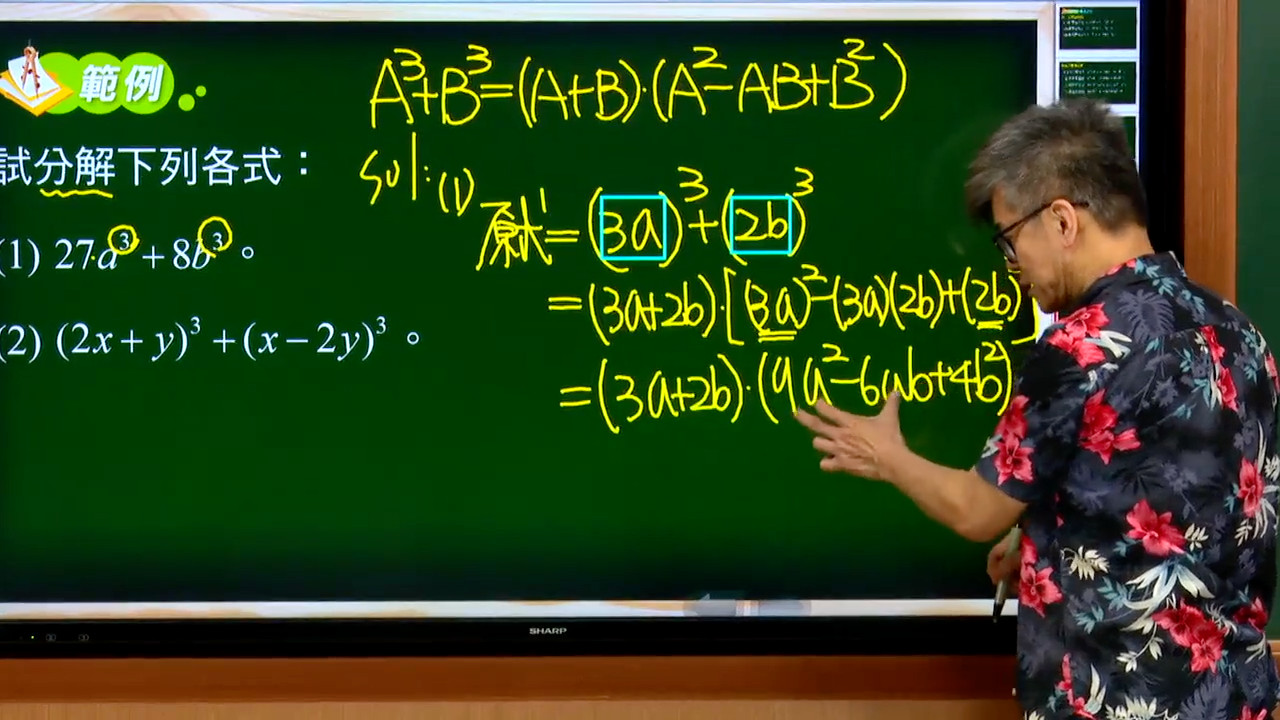 範例
試分解下列各式：
(1) 27a³ + 8b³。
(2) (2x + y)³ + (x − 2y)³。
A³+B³=(A+B)·(A²−AB+B²)
sol:(1)
原式=(3a)³+(2b)³
=(3a+2b)·[(3a)²−(3a)(2b)+(2b)
=(3a+2b)·(9a²−6ab+4b²)
SHARP